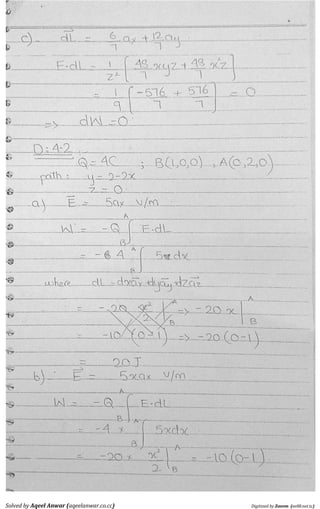 c)- dL = 6/7 ax + 12/7 ay
E.dL = 1/z² [ 48/7 xyz + 48/7 x²z ]
= 1/9 [ -576/7 + 576/7 ] = 0
=> dW = 0
D:4-2
Q = 4C ; B(1,0,0) , A(0,2,0)
path : y = 2-2x
z = 0
a) E = 5ax V/m
W = -Q ∫ E.dL
A
B
= - 4 ∫ 5 dx
A
B
where dL = dxax + dyay + dzaz
= -20 x²/2 | A B => -20 x | A B
= -10 (0-1) => -20 (0-1)
= 20 J
b)- E = 5xax V/m
W = -Q ∫ E.dL
A
B
= -4 x ∫ 5xdx
A
B
= -20 x x²/2 | A B = -10 (0-1)
Solved by Aqeel Anwar (aqeelanwar.co.cc)